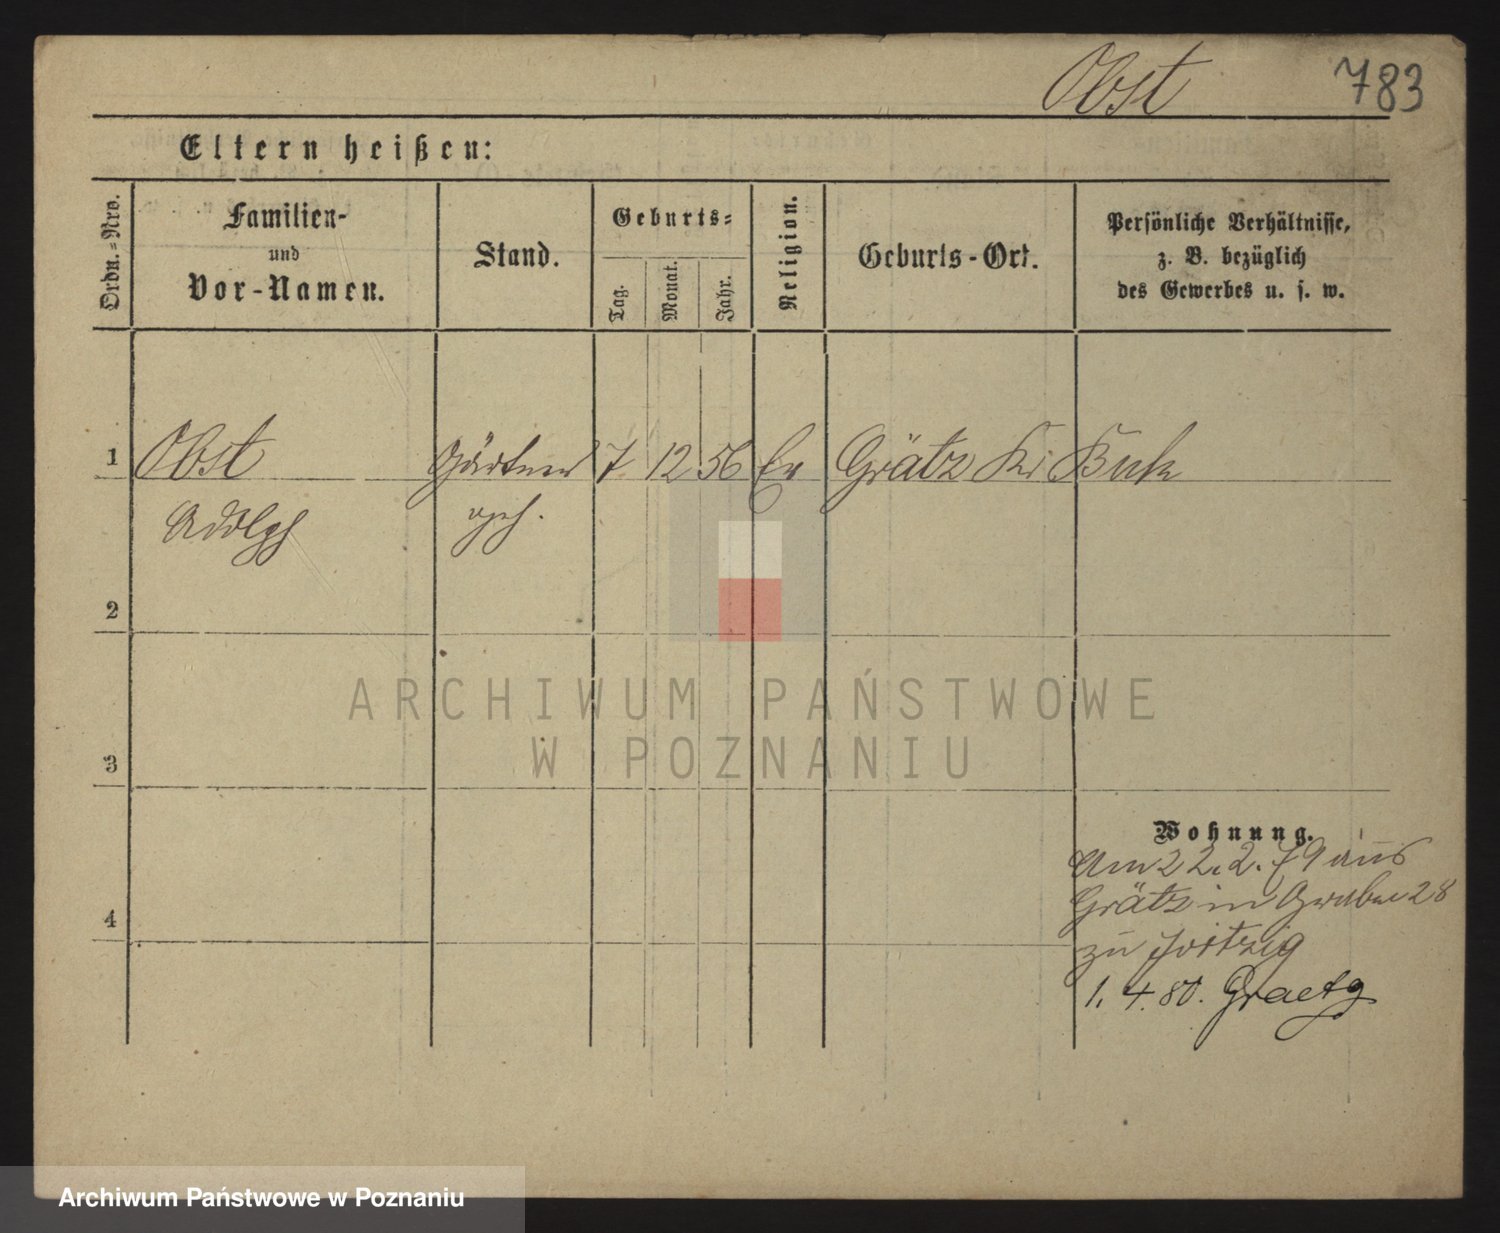 Obst 783
Eltern heißen:
Ordn.-Nro.
Familien-
und
Vor-Namen.
Stand.
Geburts-
Tag.
Monat.
Jahr.
Religion.
Geburts-Ort.
Persönliche Verhältnisse,
z. B. bezüglich
des Gewerbes u. s. w.
1 Obst Gärtner 7 12 56 Ev Grätz Kr Buk
Adolph
2
ARCHIWUM PAŃSTWOWE
W POZNANIU
3
Wohnung.
Am 22.2.79 aus
Grätz in Graben 28
zu
4
1. 4. 80. Graetz
Archiwum Państwowe w Poznaniu